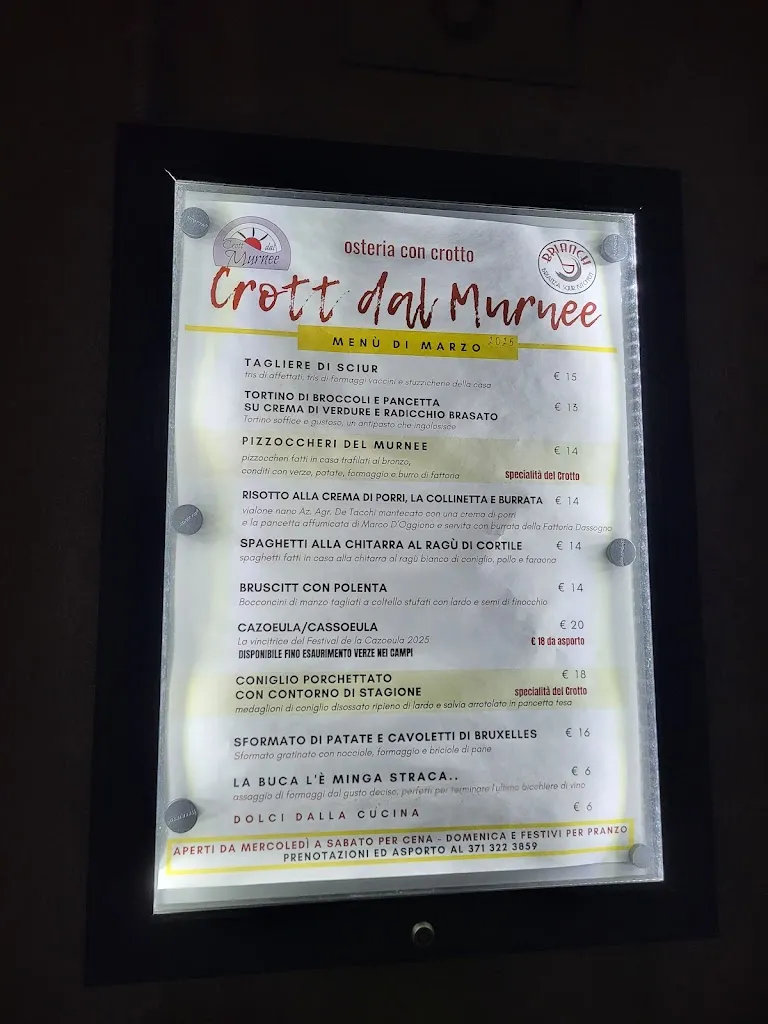 Crott dal
Murnee
osteria con crotto
BRIANCH
Crott dal Murnee
MENÙ DI MARZO 2025
TAGLIERE DI SCIUR € 15
tris di affettati, tris di formaggi vaccini e stuzzicherie della casa
TORTINO DI BROCCOLI E PANCETTA
SU CREMA DI VERDURE E RADICCHIO BRASATO € 13
Tortino soffice e gustoso, un antipasto che ingolosisce
PIZZOCCHERI DEL MURNEE € 14
pizzoccheri fatti in casa trafilati al bronzo,
conditi con verze, patate, formaggio e burro di fattoria specialità del Crotto
RISOTTO ALLA CREMA DI PORRI, LA COLLINETTA E BURRATA € 14
vialone nano Az. Agr. De Tacchi mantecato con una crema di porri
e la pancetta affumicata di Marco D'Oggiono e servita con burrata della Fattoria Dassogno
SPAGHETTI ALLA CHITARRA AL RAGÙ DI CORTILE € 14
spaghetti fatti in casa alla chitarra al ragù bianco di coniglio, pollo e faraona
BRUSCITT CON POLENTA € 14
Bocconcini di manzo tagliati a coltello stufati con lardo e semi di finocchio
CAZOEULA/CASSOEULA € 20
La vincitrice del Festival de la Cazoeula 2025 € 18 da asporto
DISPONIBILE FINO ESAURIMENTO VERZE NEI CAMPI
CONIGLIO PORCHETTATO € 18
CON CONTORNO DI STAGIONE specialità del Crotto
medaglioni di coniglio disossato ripieno di lardo e salvia arrotolato in pancetta tesa
SFORMATO DI PATATE E CAVOLETTI DI BRUXELLES € 16
Sformato gratinato con nocciole, formaggio e briciole di pane
LA BUCA L'È MINGA STRACA.. € 6
assaggio di formaggi dal gusto deciso, perfetti per terminare l'ultimo bicchiere di vino
DOLCI DALLA CUCINA € 6
APERTI DA MERCOLEDÌ A SABATO PER CENA - DOMENICA E FESTIVI PER PRANZO
PRENOTAZIONI ED ASPORTO AL 371 322 3859